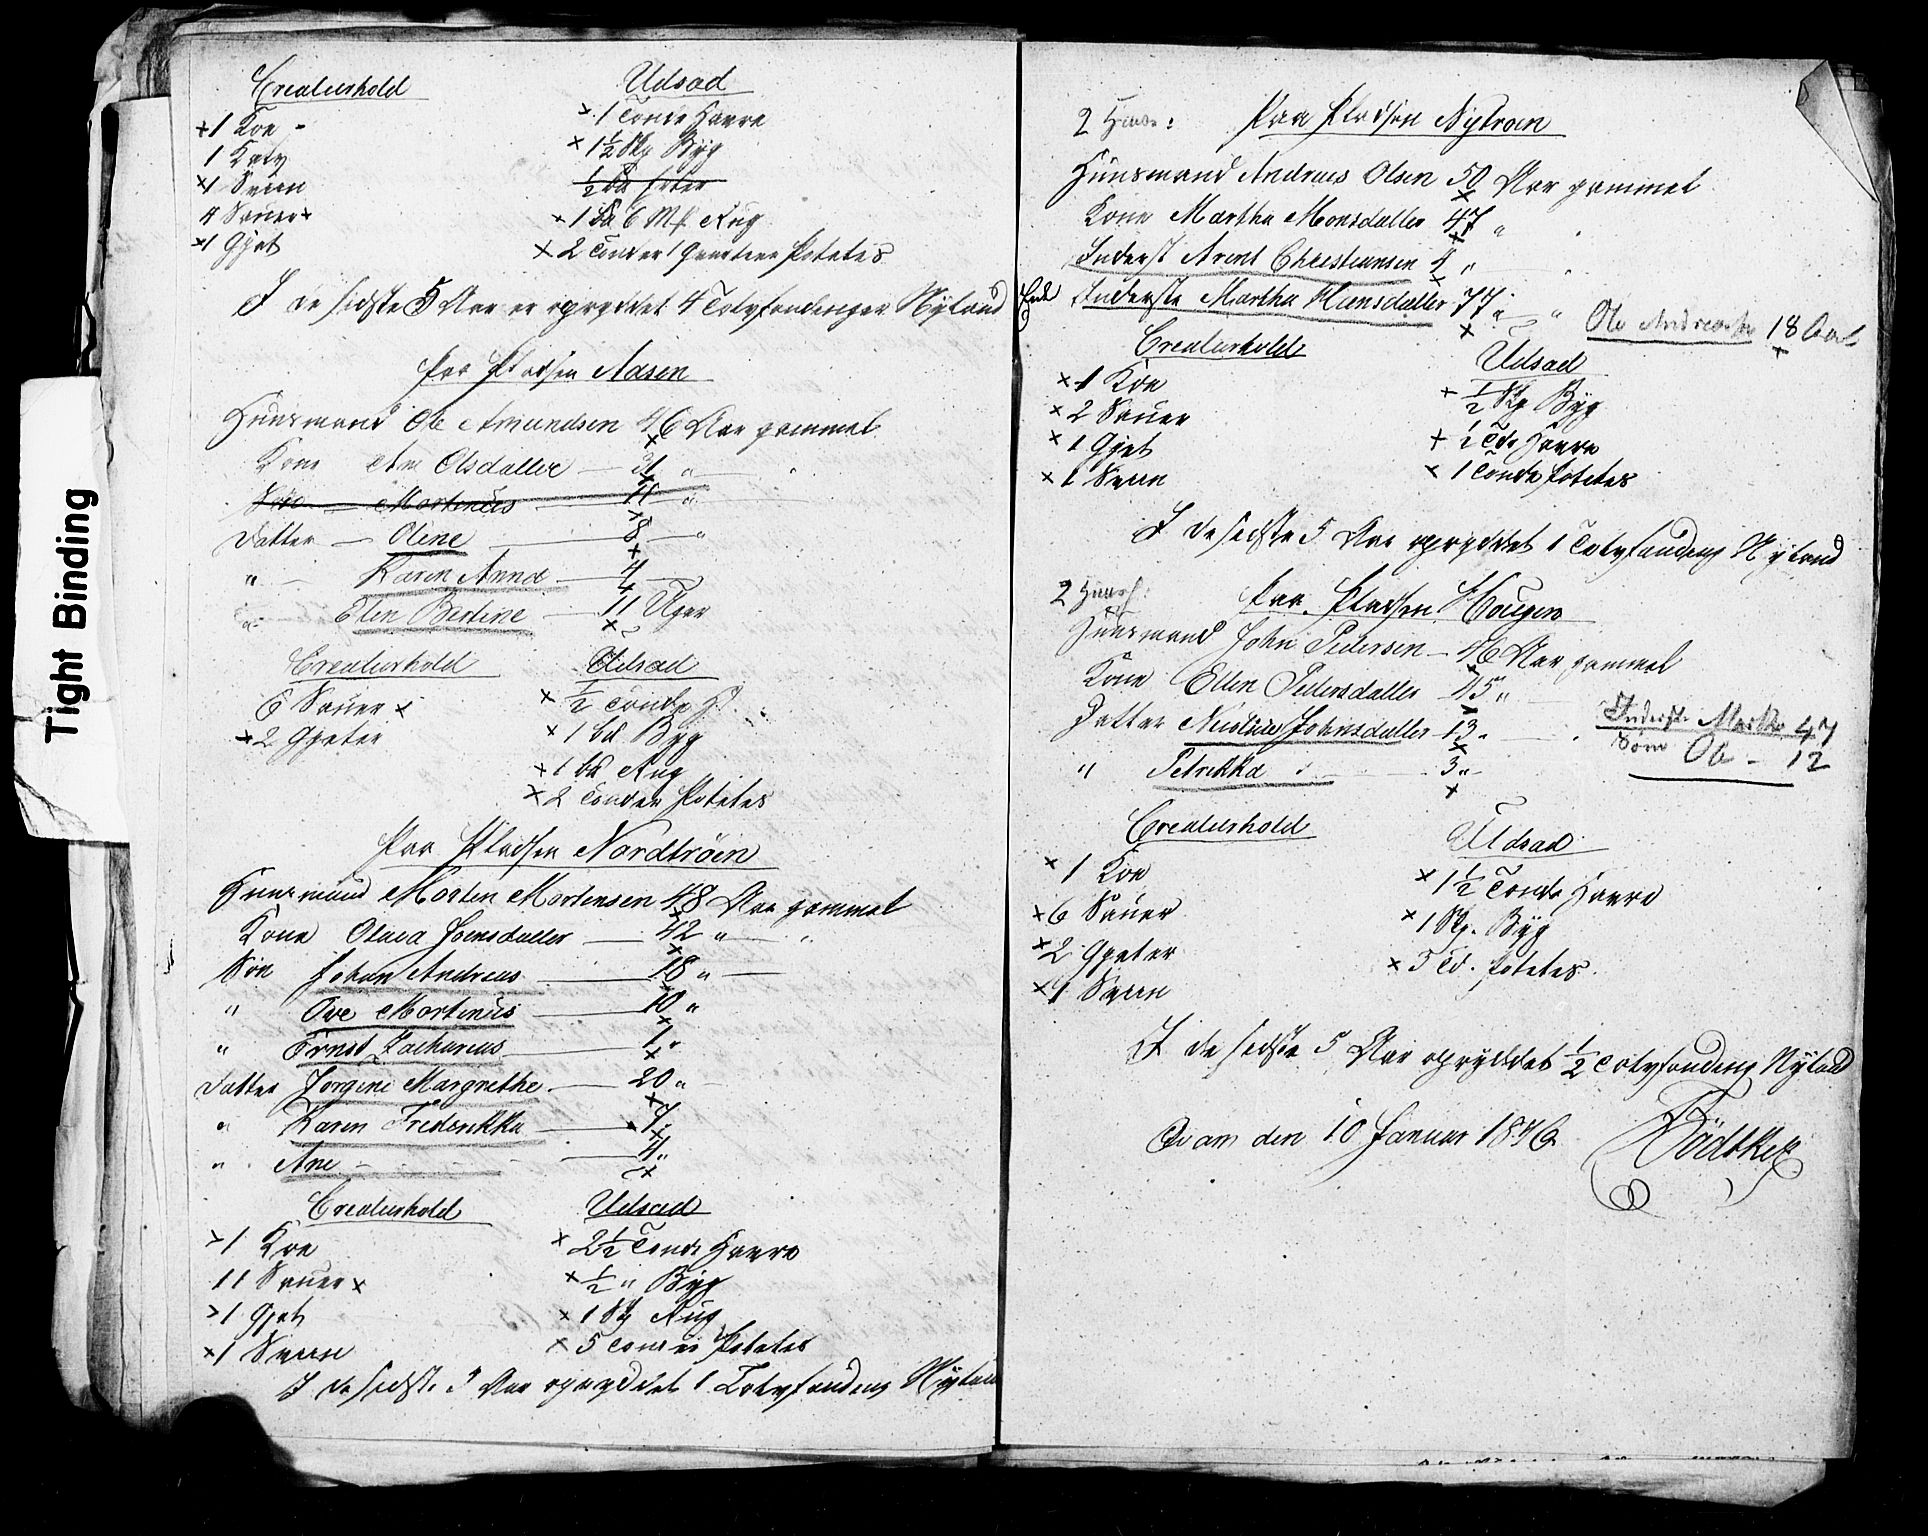 Tight Binding
Creaturhold Udsæd
1 Koe 1 Tønde Havre
1 Kalv 1½ Skp Byg
1 Sviin
4 Sauer 1 Sk 6 Mk Rug
1 Gjet 2 Tønder 1 Poteter
I de sidste 5 Aar er opryddet 4 Tolvfondinger Nyland
Paa Pladsen Aasen
Huusmand Ole Amundsen 46 Aar gammel
Kone Ane Olsdatter 31 "
Søn Martinus 11 "
Datter Olene 8 "
" Karen Anna 4
" Elen Bertine 11 Uger
Creaturhold Udsæd
6 Sauer ½ Tønde H
2 Gjeter 1 Sk Byg
1 Sk Rug
2 Tønder Poteter
Paa Pladsen Nordtrøen
Huusmand Morten Mortensen 48 Aar gammel
Kone Olava Joensdatter 42 " "
Søn Johan Andreas 18 "
" Ove Martinus 10 "
" Ernst Zacharias 1 "
Datter Jorgine Margrethe 20 "
" Karen Fredrikka 7 "
" Ane 4 "
Creaturhold Udsæd
1 Koe 2½ Tønde Havre
11 Sauer ½ " Byg
1 Gjet 1 Skp Rug
1 Sviin 5 Tønder Poteter
I de sidste 5 Aar opryddet 1 Tolvfonding Nyland
2 Paa Pladsen Nytrøen
Huusmand Andreas Olsen 50 Aar gammel
Kone Martha Monsdatter 47 "
Inderst Arent Christiansen 4 "
Enke Inderste Martha Hansdatter 77 " Ole Andreas 18 Aar
Creaturhold Udsæd
1 Koe ½ Skp Byg
2 Sauer ½ Tde Havre
1 Gjet 1 Tønde Poteter
1 Sviin
I de sidste 5 Aar opryddet 1 Tolvfonding Nyland
2 Paa Pladsen Hougen
Huusmand John Pedersen 46 Aar gammel
Kone Ellen Pedersdatter 45 "
Datter Nicoline Johnsdatter 13 " Inderste Martha 47
" Petrikka 3 " Søn Ole - 12
Creaturhold Udsæd
1 Koe 1½ Tønde Havre
6 Sauer 1 Skp. Byg
2 Gjeter 5 Td. Poteter
1 Sviin
I de sidste 5 Aar opryddet ½ Tolvfonding Nyland
Qvam den 10 Januar 1846